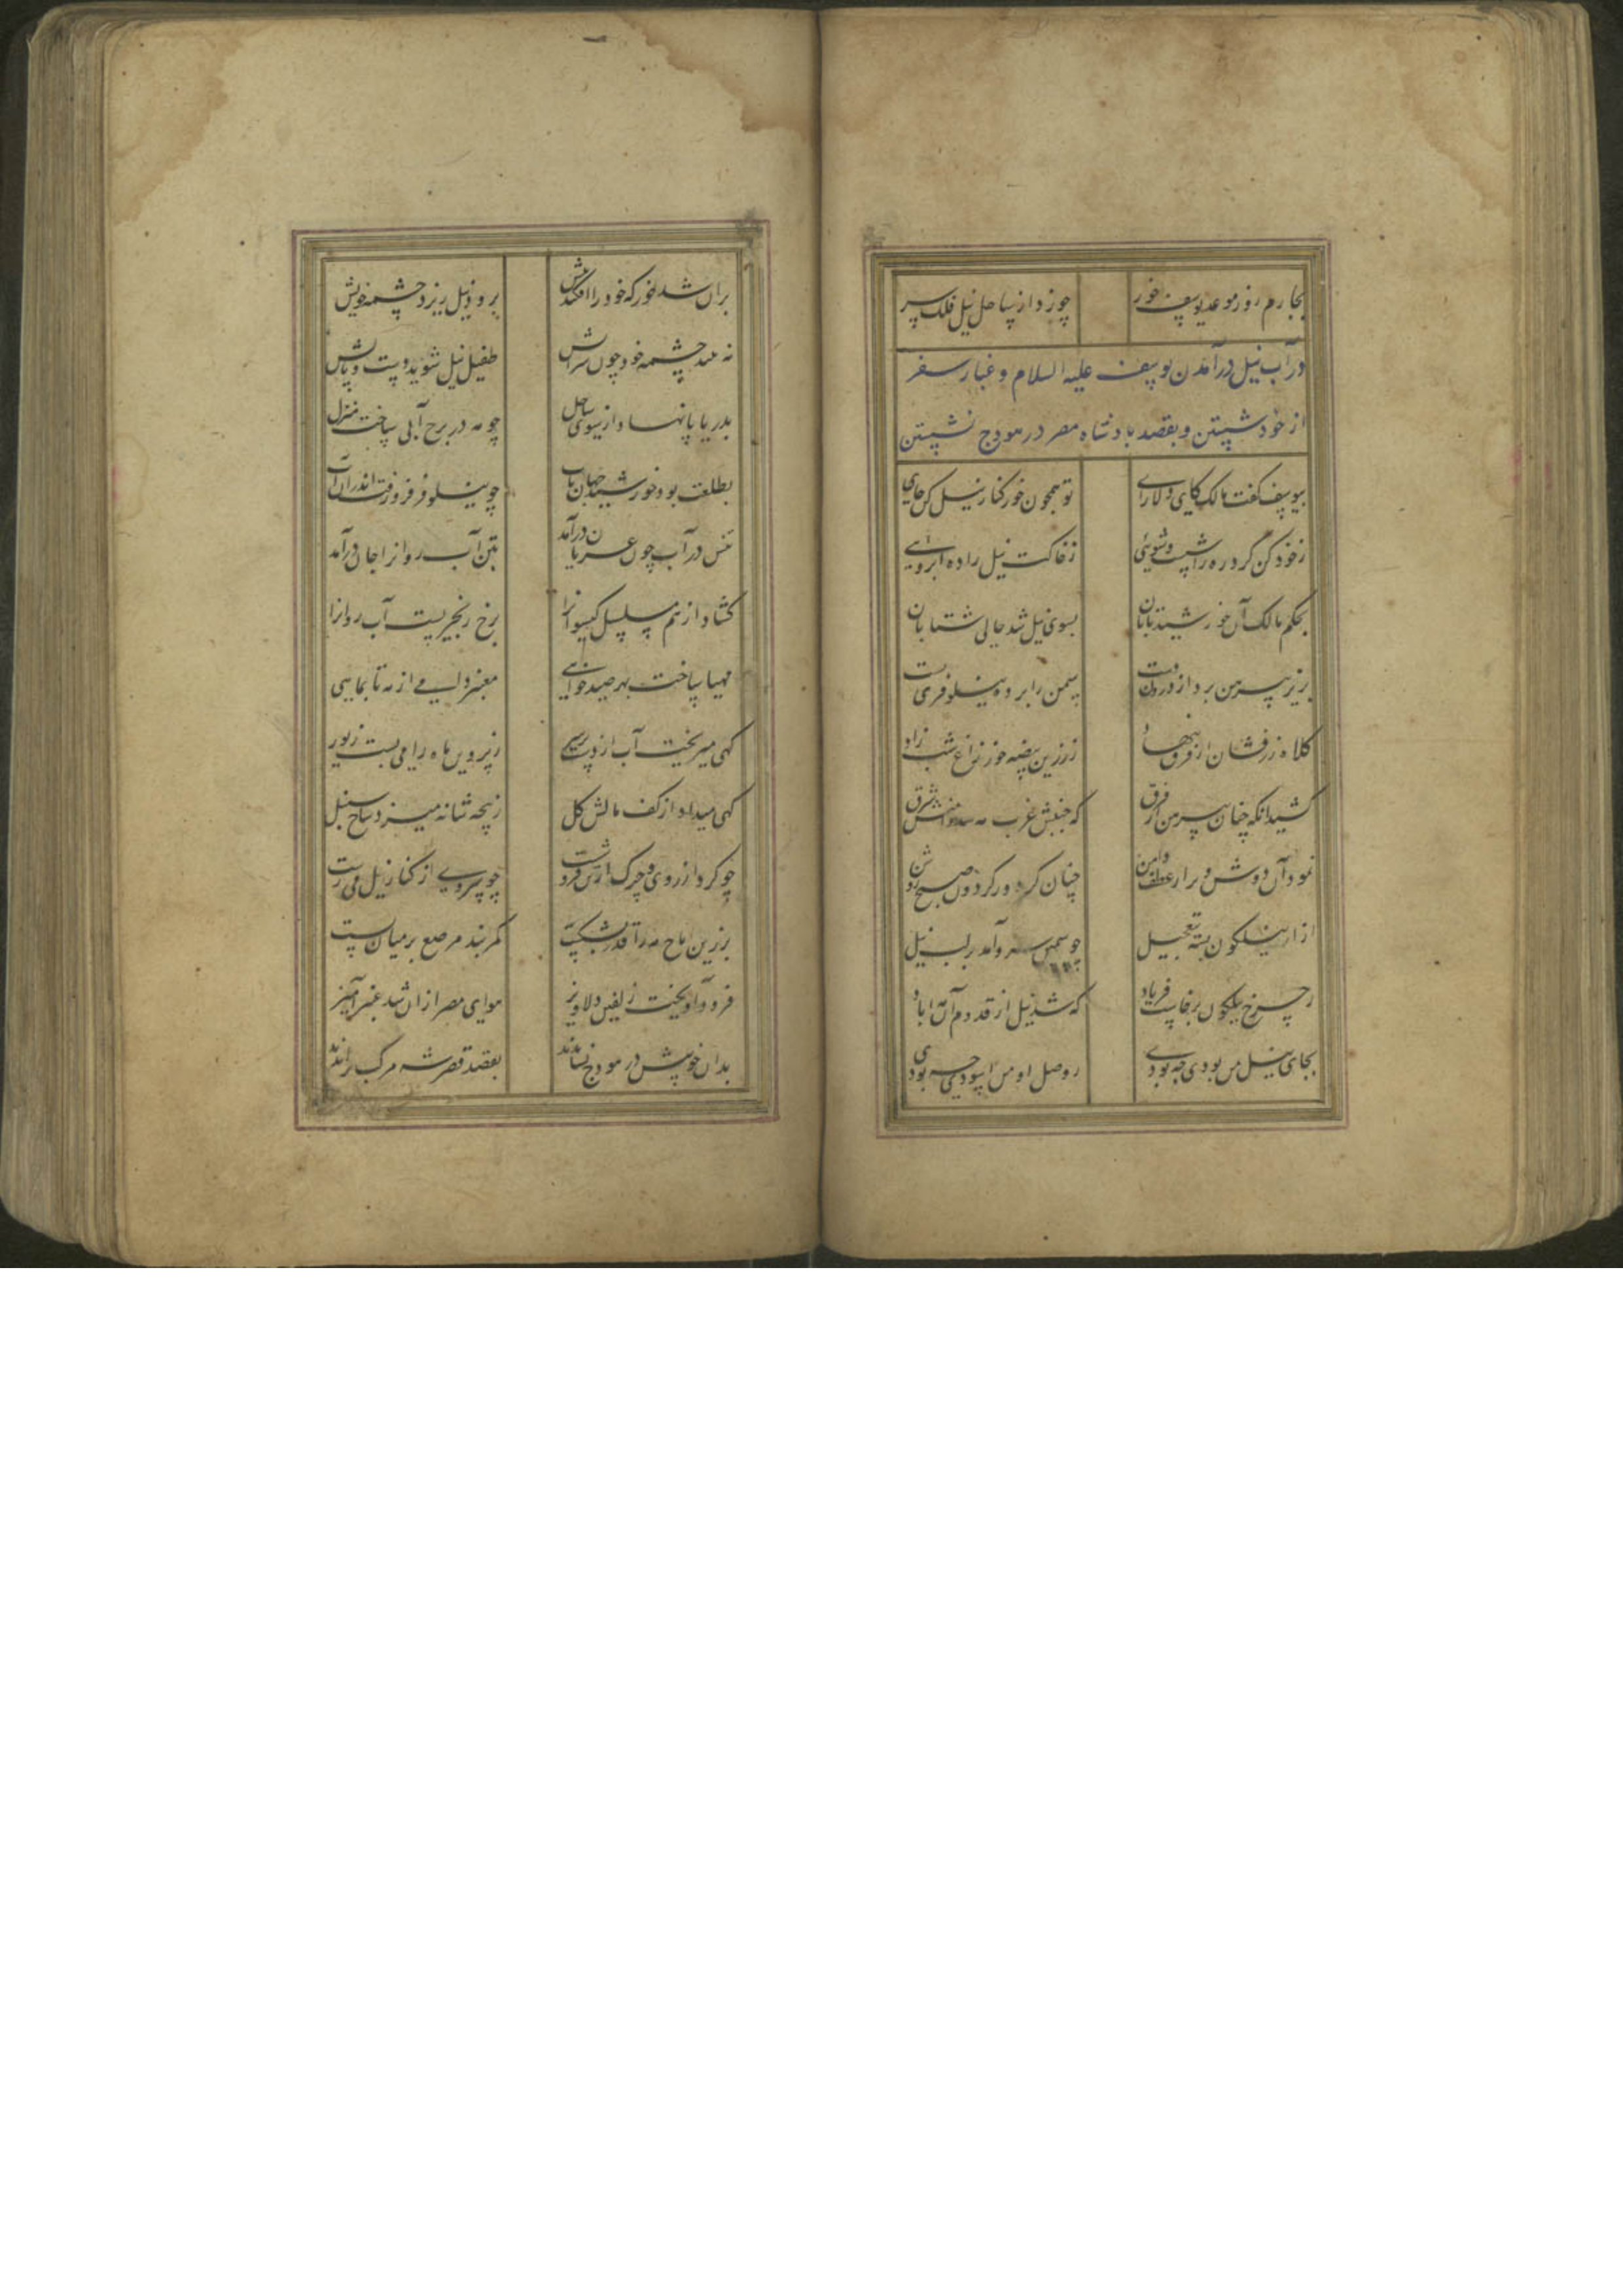 چهارم روز موعد یوسف خور چو زد از ساحل نیل فلک سر
در آب نیل درآمدن یوسف علیه السلام و غبار سفر
از خود شستن و بقصد بادشاه مصر در هودج نشستن
بیوسف گفت مالک کای دلارای تو همچون خور کنار نیل کن جای
ز خود کن گرد ره را شست و شویی ز خاکت نیل را ده آبرویی
بحکم مالک آن خورشید تابان بسوی نیل شد حالی شتابان
بزیر پیرهن برد از درون دست سمن را پرده نیلوفری بست
کلاه زرفشان از فرق بنهاد ز زرین بیضه خور زاغ شب زاد
کشید آنگه چنان پیرهن از فرق که جیبش غرب مه شد دامنش شرق
نمود آن دوش و بر از عطف دامن چنان کز دور گردون صبح روشن
ازار نیلگون بسته بتعجیل چو سیمین سرو آمد بر لب نیل
ز چرخ نیلگون برخاست فریاد که شد نیل از قدوم آن آباد
بجای نیل من بودی چه بودی ز وصل او من آسودی چه بودی
بران شد خور که خود را افکند پیش برود نیل ریزد چشمه خویش
نه بیند چشمه خود چون سزایش طفیل نیل شوید دست و پایش
بدریا پا نهاد از سوی ساحل چو مه در برج آبی ساخت منزل
بطلعت بود خورشید جهان تاب چو نیلوفر فرو رفت اندران آب
تنش در آب چون عریان درآمد بتن آب روان را جان درآمد
گشاد از هم مسلسل گیسوان را برخ زنجیر بست آب روان را
مهیا ساخت بهر صید خواهی معنبر دامی از مه تا بماهی
گهی میریخت آب از دست بر سر ز پروین ماه را می بست زیور
گهی میداد از کف مالش گل ز پنجه شانه میزد شاخ سنبل
چو گرد از روی و چرک از تن فرو شست چو سروی از کنار نیل می رست
بزرین تاج مه را قدر بشکست کمربند مرصع بر میان بست
فرو آویخت زلفین دلاویز هوای مصر ازان شد عنبرآمیز
بدان خوبیش در هودج نشاندند بقصد قصر شه مرکب راندند